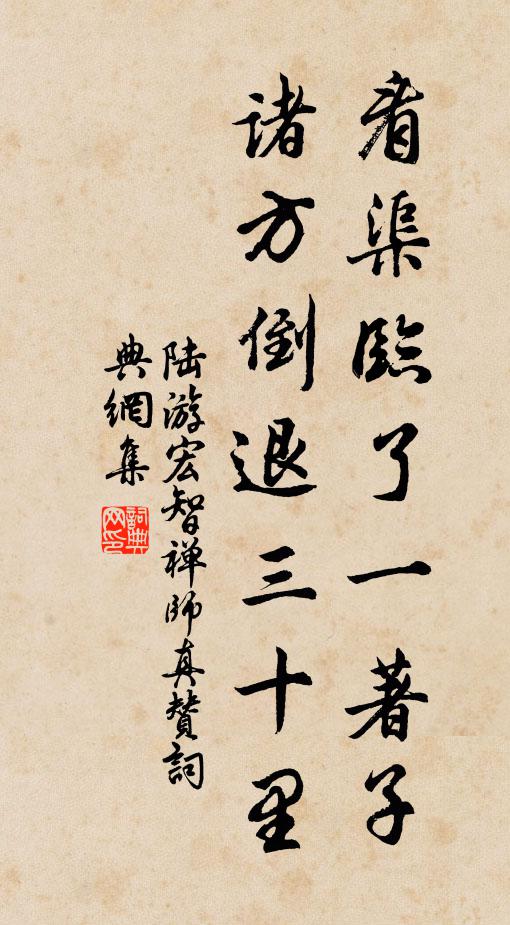 看渠臨了一著子
諸方倒退三十里
陸游宏智禅師真贊詞
典網集
詞典
网印